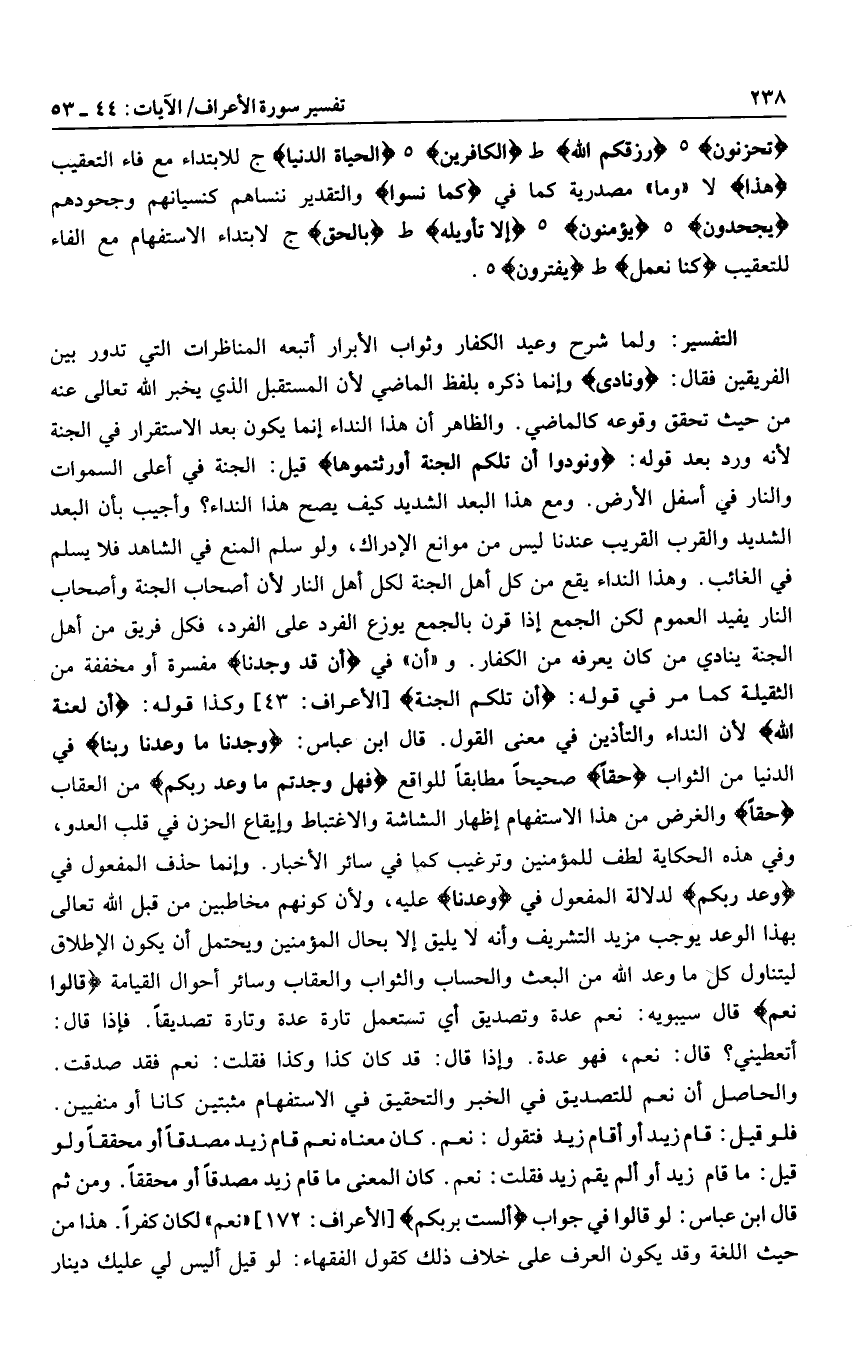 ٢٣٨
تفسير سورة الأعراف/ الآيات: ٤٤ ـ ٥٣
﴿تحزنون﴾ ٥ ﴿رزقكم الله﴾ ط ﴿الكافرين﴾ ٥ ﴿الحياة الدنيا﴾ ج للابتداء مع فاء التعقيب
﴿هذا﴾ لا «وما» مصدرية كما في ﴿كما نسوا﴾ والتقدير ننساهم كنسيانهم وجحودهم
﴿يجحدون﴾ ٥ ﴿يؤمنون﴾ ٥ ﴿إلا تأويله﴾ ط ﴿بالحق﴾ ج لابتداء الاستفهام مع الفاء
للتعقيب ﴿كنا نعمل﴾ ط ﴿يفترون﴾ ٥ .
التفسير: ولما شرح وعيد الكفار وثواب الأبرار أتبعه المناظرات التي تدور بين
الفريقين فقال: ﴿ونادى﴾ وإنما ذكره بلفظ الماضي لأن المستقبل الذي يخبر الله تعالى عنه
من حيث تحقق وقوعه كالماضي. والظاهر أن هذا النداء إنما يكون بعد الاستقرار في الجنة
لأنه ورد بعد قوله: ﴿ونودوا أن تلكم الجنة أورثتموها﴾ قيل: الجنة في أعلى السموات
والنار في أسفل الأرض. ومع هذا البعد الشديد كيف يصح هذا النداء؟ وأجيب بأن البعد
الشديد والقرب القريب عندنا ليس من موانع الإدراك، ولو سلم المنع في الشاهد فلا يسلم
في الغائب. وهذا النداء يقع من كل أهل الجنة لكل أهل النار لأن أصحاب الجنة وأصحاب
النار يفيد العموم لكن الجمع إذا قرن بالجمع يوزع الفرد على الفرد، فكل فريق من أهل
الجنة ينادي من كان يعرفه من الكفار. و «أن» في ﴿أن قد وجدنا﴾ مفسرة أو مخففة من
الثقيلة كما مر في قوله: ﴿أن تلكم الجنة﴾ [الأعراف: ٤٣] وكذا قوله: ﴿أن لعنة
الله﴾ لأن النداء والتأذين في معنى القول. قال ابن عباس: ﴿وجدنا ما وعدنا ربنا﴾ في
الدنيا من الثواب ﴿حقاً﴾ صحيحاً مطابقاً للواقع ﴿فهل وجدتم ما وعد ربكم﴾ من العقاب
﴿حقاً﴾ والغرض من هذا الاستفهام إظهار الشاشة والاغتباط وإيقاع الحزن في قلب العدو،
وفي هذه الحكاية لطف للمؤمنين وترغيب كما في سائر الأخبار. وإنما حذف المفعول في
﴿وعد ربكم﴾ لدلالة المفعول في ﴿وعدنا﴾ عليه، ولأن كونهم مخاطبين من قبل الله تعالى
بهذا الوعد يوجب مزيد التشريف وأنه لا يليق إلا بحال المؤمنين ويحتمل أن يكون الإطلاق
ليتناول كل ما وعد الله من البعث والحساب والثواب والعقاب وسائر أحوال القيامة ﴿قالوا
نعم﴾ قال سيبويه: نعم عدة وتصديق أي تستعمل تارة عدة وتارة تصديقاً. فإذا قال:
أتعطيني؟ قال: نعم، فهو عدة. وإذا قال: قد كان كذا وكذا فقلت: نعم فقد صدقت.
والحاصل أن نعم للتصديق في الخبر والتحقيق في الاستفهام مثبتين كانا أو منفيين.
فلو قيل: قام زيد أو أقام زيد فتقول : نعم. كان معناه نعم قام زيد مصدقاً أو محققاً ولو
قيل: ما قام زيد أو ألم يقم زيد فقلت: نعم. كان المعنى ما قام زيد مصدقاً أو محققاً. ومن ثم
قال ابن عباس: لو قالوا في جواب ﴿ألست بربكم﴾ [الأعراف: ١٧٢] «نعم» لكان كفراً. هذا من
حيث اللغة وقد يكون العرف على خلاف ذلك كقول الفقهاء: لو قيل أليس لي عليك دينار